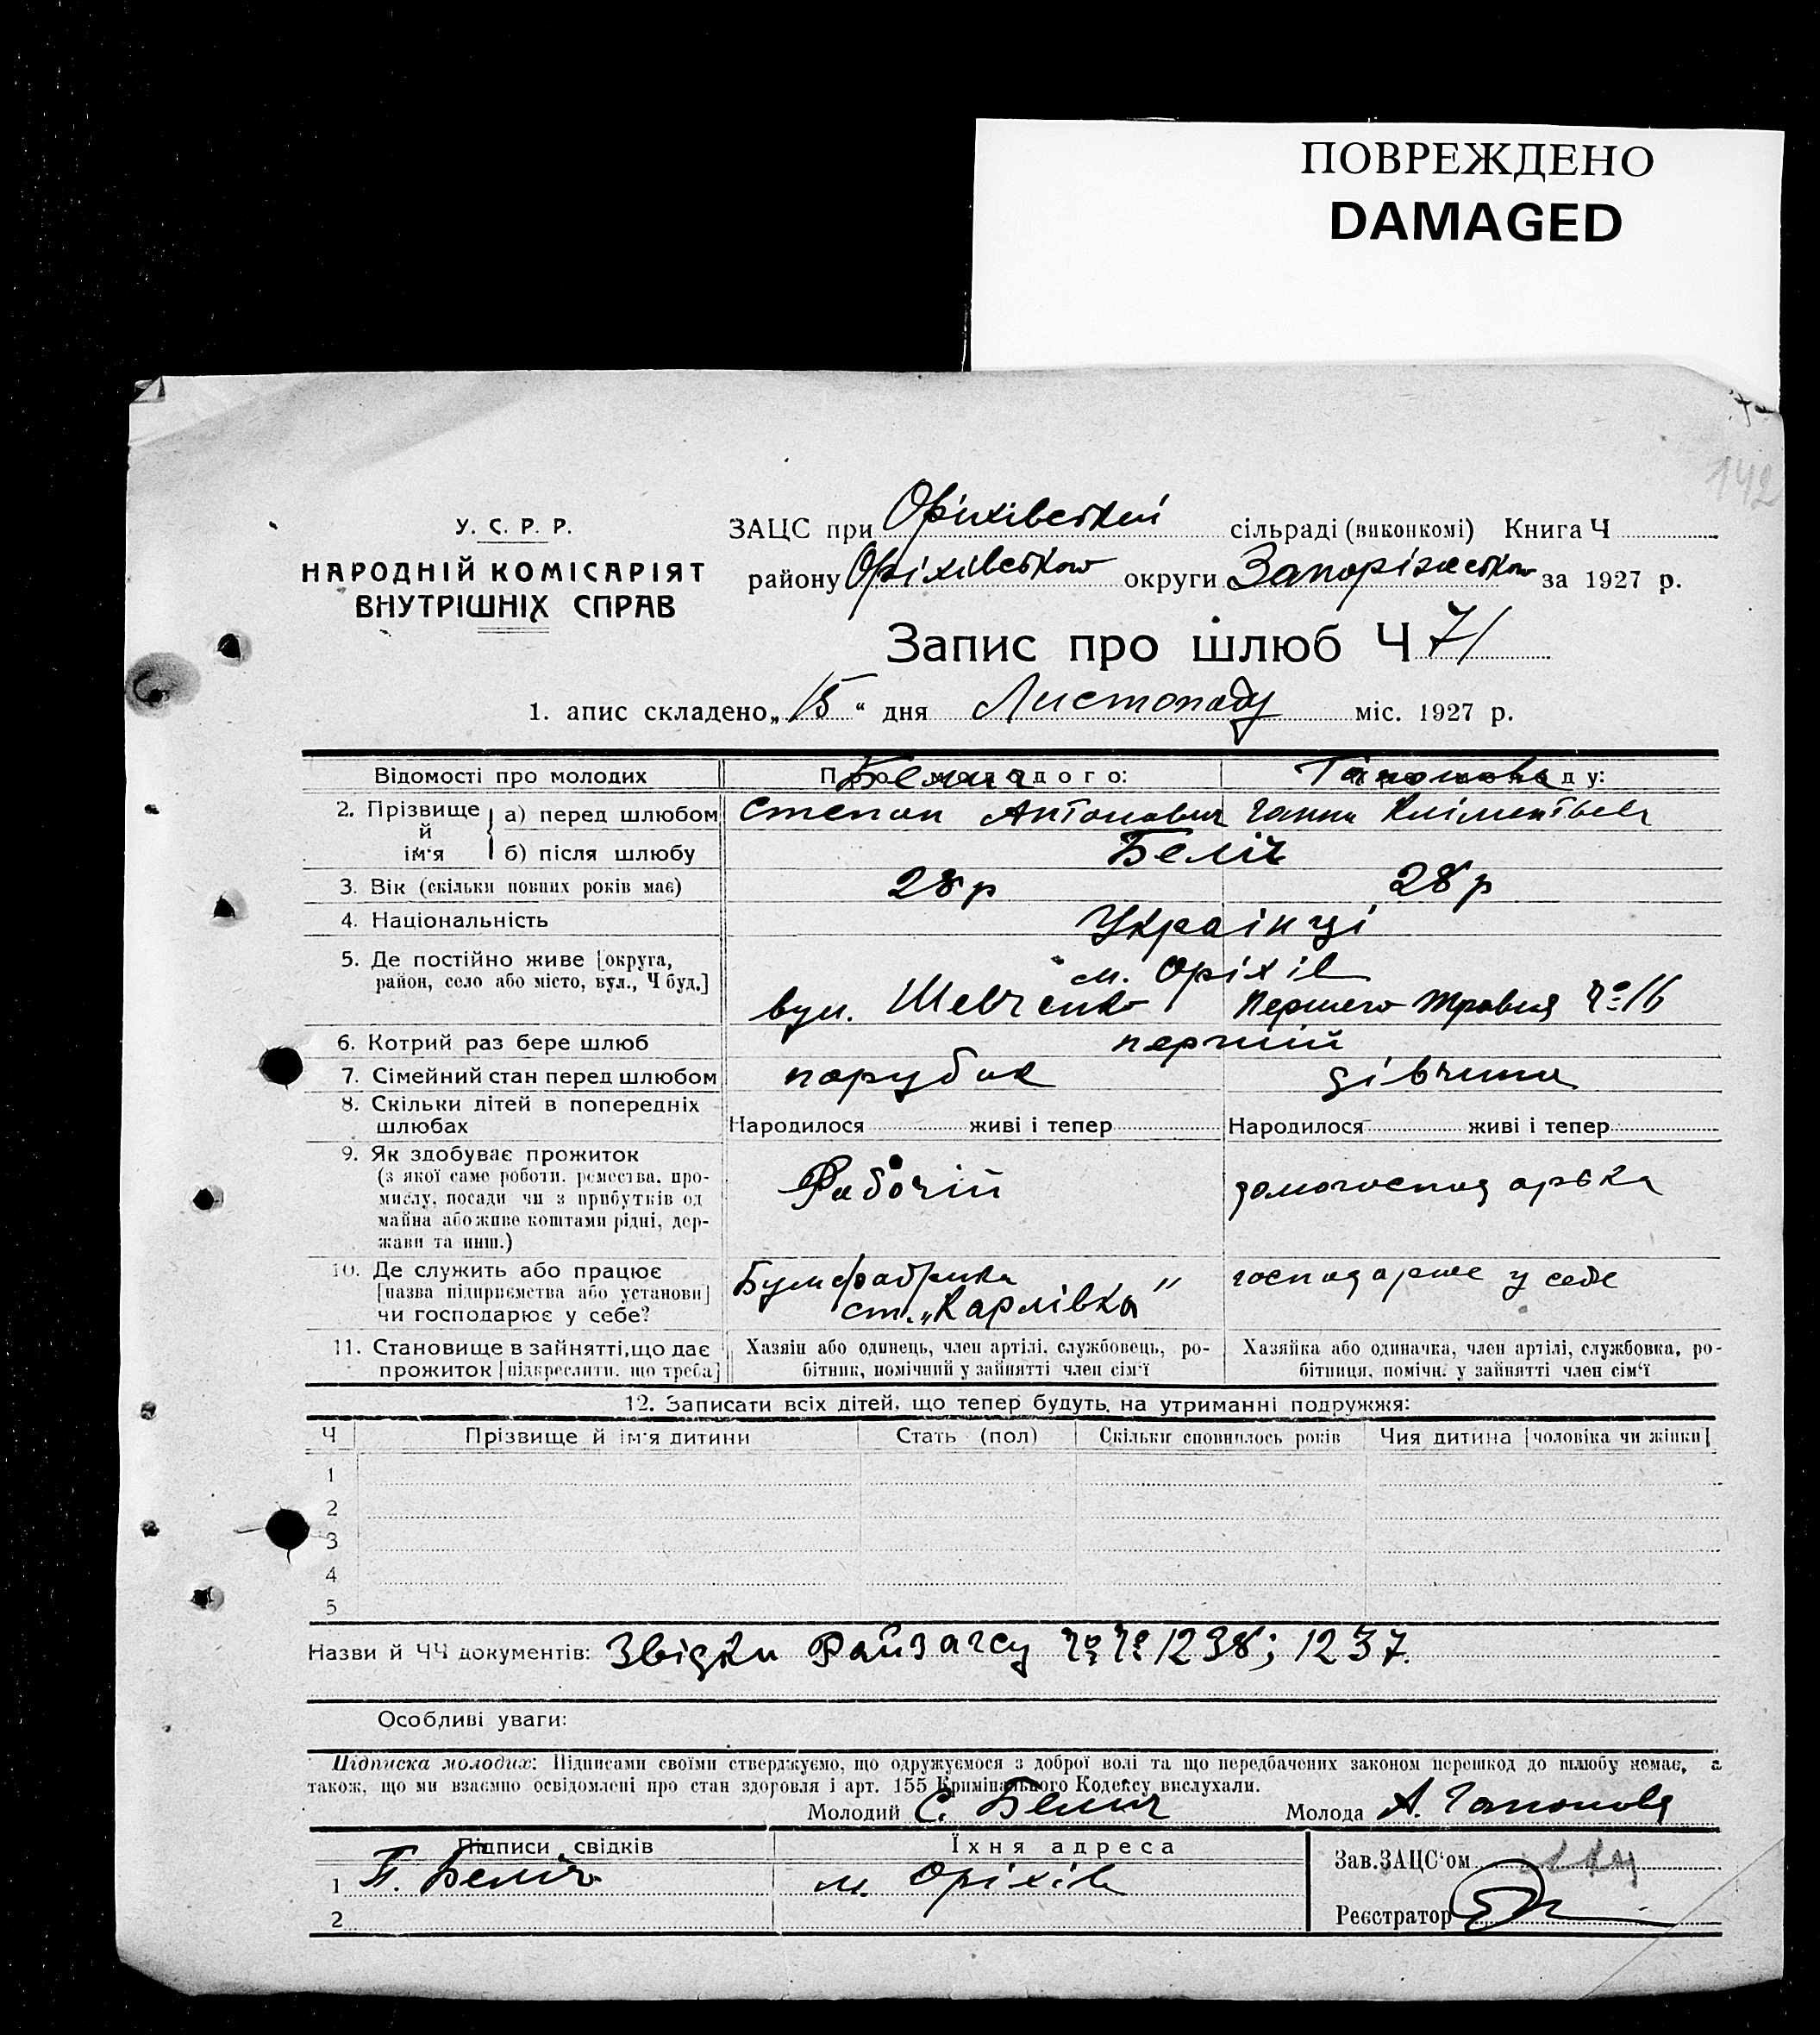 ПОВРЕЖДЕНО
DAMAGED
142
У. С. Р. Р.
НАРОДНІЙ КОМІСАРІЯТ
ВНУТРІШНІХ СПРАВ
ЗАЦС при Оріхівській сільраді (виконкомі) Книга Ч
району Оріхівськом округи Запоріжськом за 1927 р.
Запис про шлюб Ч 71
1. апис складено „15“ дня Листопаду міс. 1927 р.
Відомості про молодих Про молодого: Белич Гапонова ду:
2. Прізвище й ім'я а) перед шлюбом Степан Антонович Ганна Кліментьевн
б) після шлюбу Беліч
3. Вік (скільки повних років має) 28 р 28 р
4. Національність Українці
5. Де постійно живе [округа, район, село або місто, вул., Ч буд.] м. Оріхів
вул. Шевченко Першого Травня Ч° 16
6. Котрий раз бере шлюб перший
7. Сімейний стан перед шлюбом парубок дівчина
8. Скільки дітей в попередніх шлюбах Народилося живі і тепер Народилося живі і тепер
9. Як здобуває прожиток
(з якої саме роботи, ремества, про-
мислу, посади чи з прибутків од
майна або живе коштами рідні, дер-
жави та инш.)
Рабочій домогосподарька
10. Де служить або працює
[назва підприємства або установи]
чи господарює у себе?
Бумфабрика
ст. „Карлівка"
господарює у себе
11. Становище в зайнятті, що дає
прожиток [підкреслити, що треба]
Хазяін або одинець, член артілі, службовець, ро-
бітник, помічний у зайнятті член сім'ї
Хазяйка або одиначка, член артілі, службовка, ро-
бітниця, помічн. у зайнятті член сім'ї
12. Записати всіх дітей, що тепер будуть на утриманні подружжя:
Ч Прізвище й ім'я дитини Стать (пол) Скільки сповнилось років Чия дитина [чоловіка чи жінки]
1
2
3
4
5
Назви й ЧЧ документів: Звідки Райзагсу Ч°Ч° 1238; 1237.
Особливі уваги:
Підписка молодих: Підписами своїми стверджуємо, що одружуємося з доброї волі та що передбачених законом перешкод до шлюбу немає, а
також, що ми взаємно освідомлені про стан здоровля і арт. 155 Кримінального Кодексу вислухали.
Молодий С. Белич Молода А. Гапонова
Підписи свідків Їхня адреса
1 П. Беліч м. Оріхів
2
Зав. ЗАЦС'ом
Реєстратор